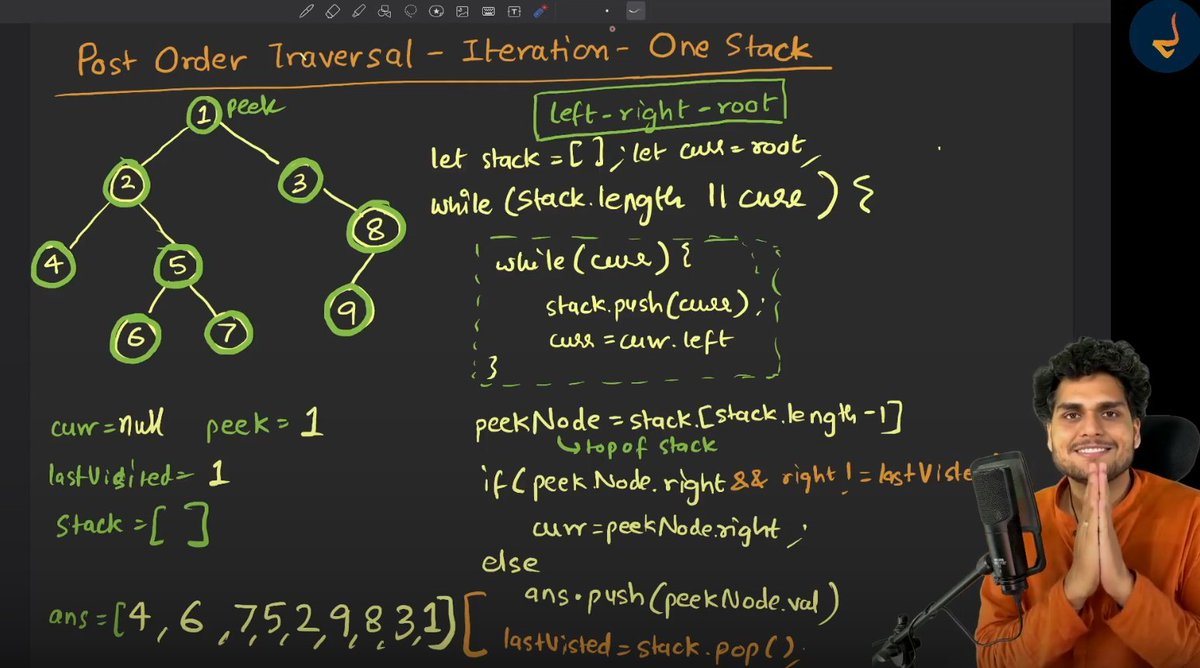 Post Order Traversal - Iteration - One Stack
1 peek
2
3
8
4
5
6
7
9
left-right-root
let stack = [ ] ; let curr = root,
while (stack.length || curr) {
while (curr) {
stack.push(curr);
curr = curr.left
}
peekNode = stack.[stack.length-1]
top of stack
if (peekNode.right && right != lastViste
curr = peekNode.right ;
else
ans.push(peekNode.val)
lastVisted = stack.pop();
curr = null peek = 1
lastVisited = 1
Stack = [ ]
ans = [4, 6, 7, 5, 2, 9, 8, 3, 1]